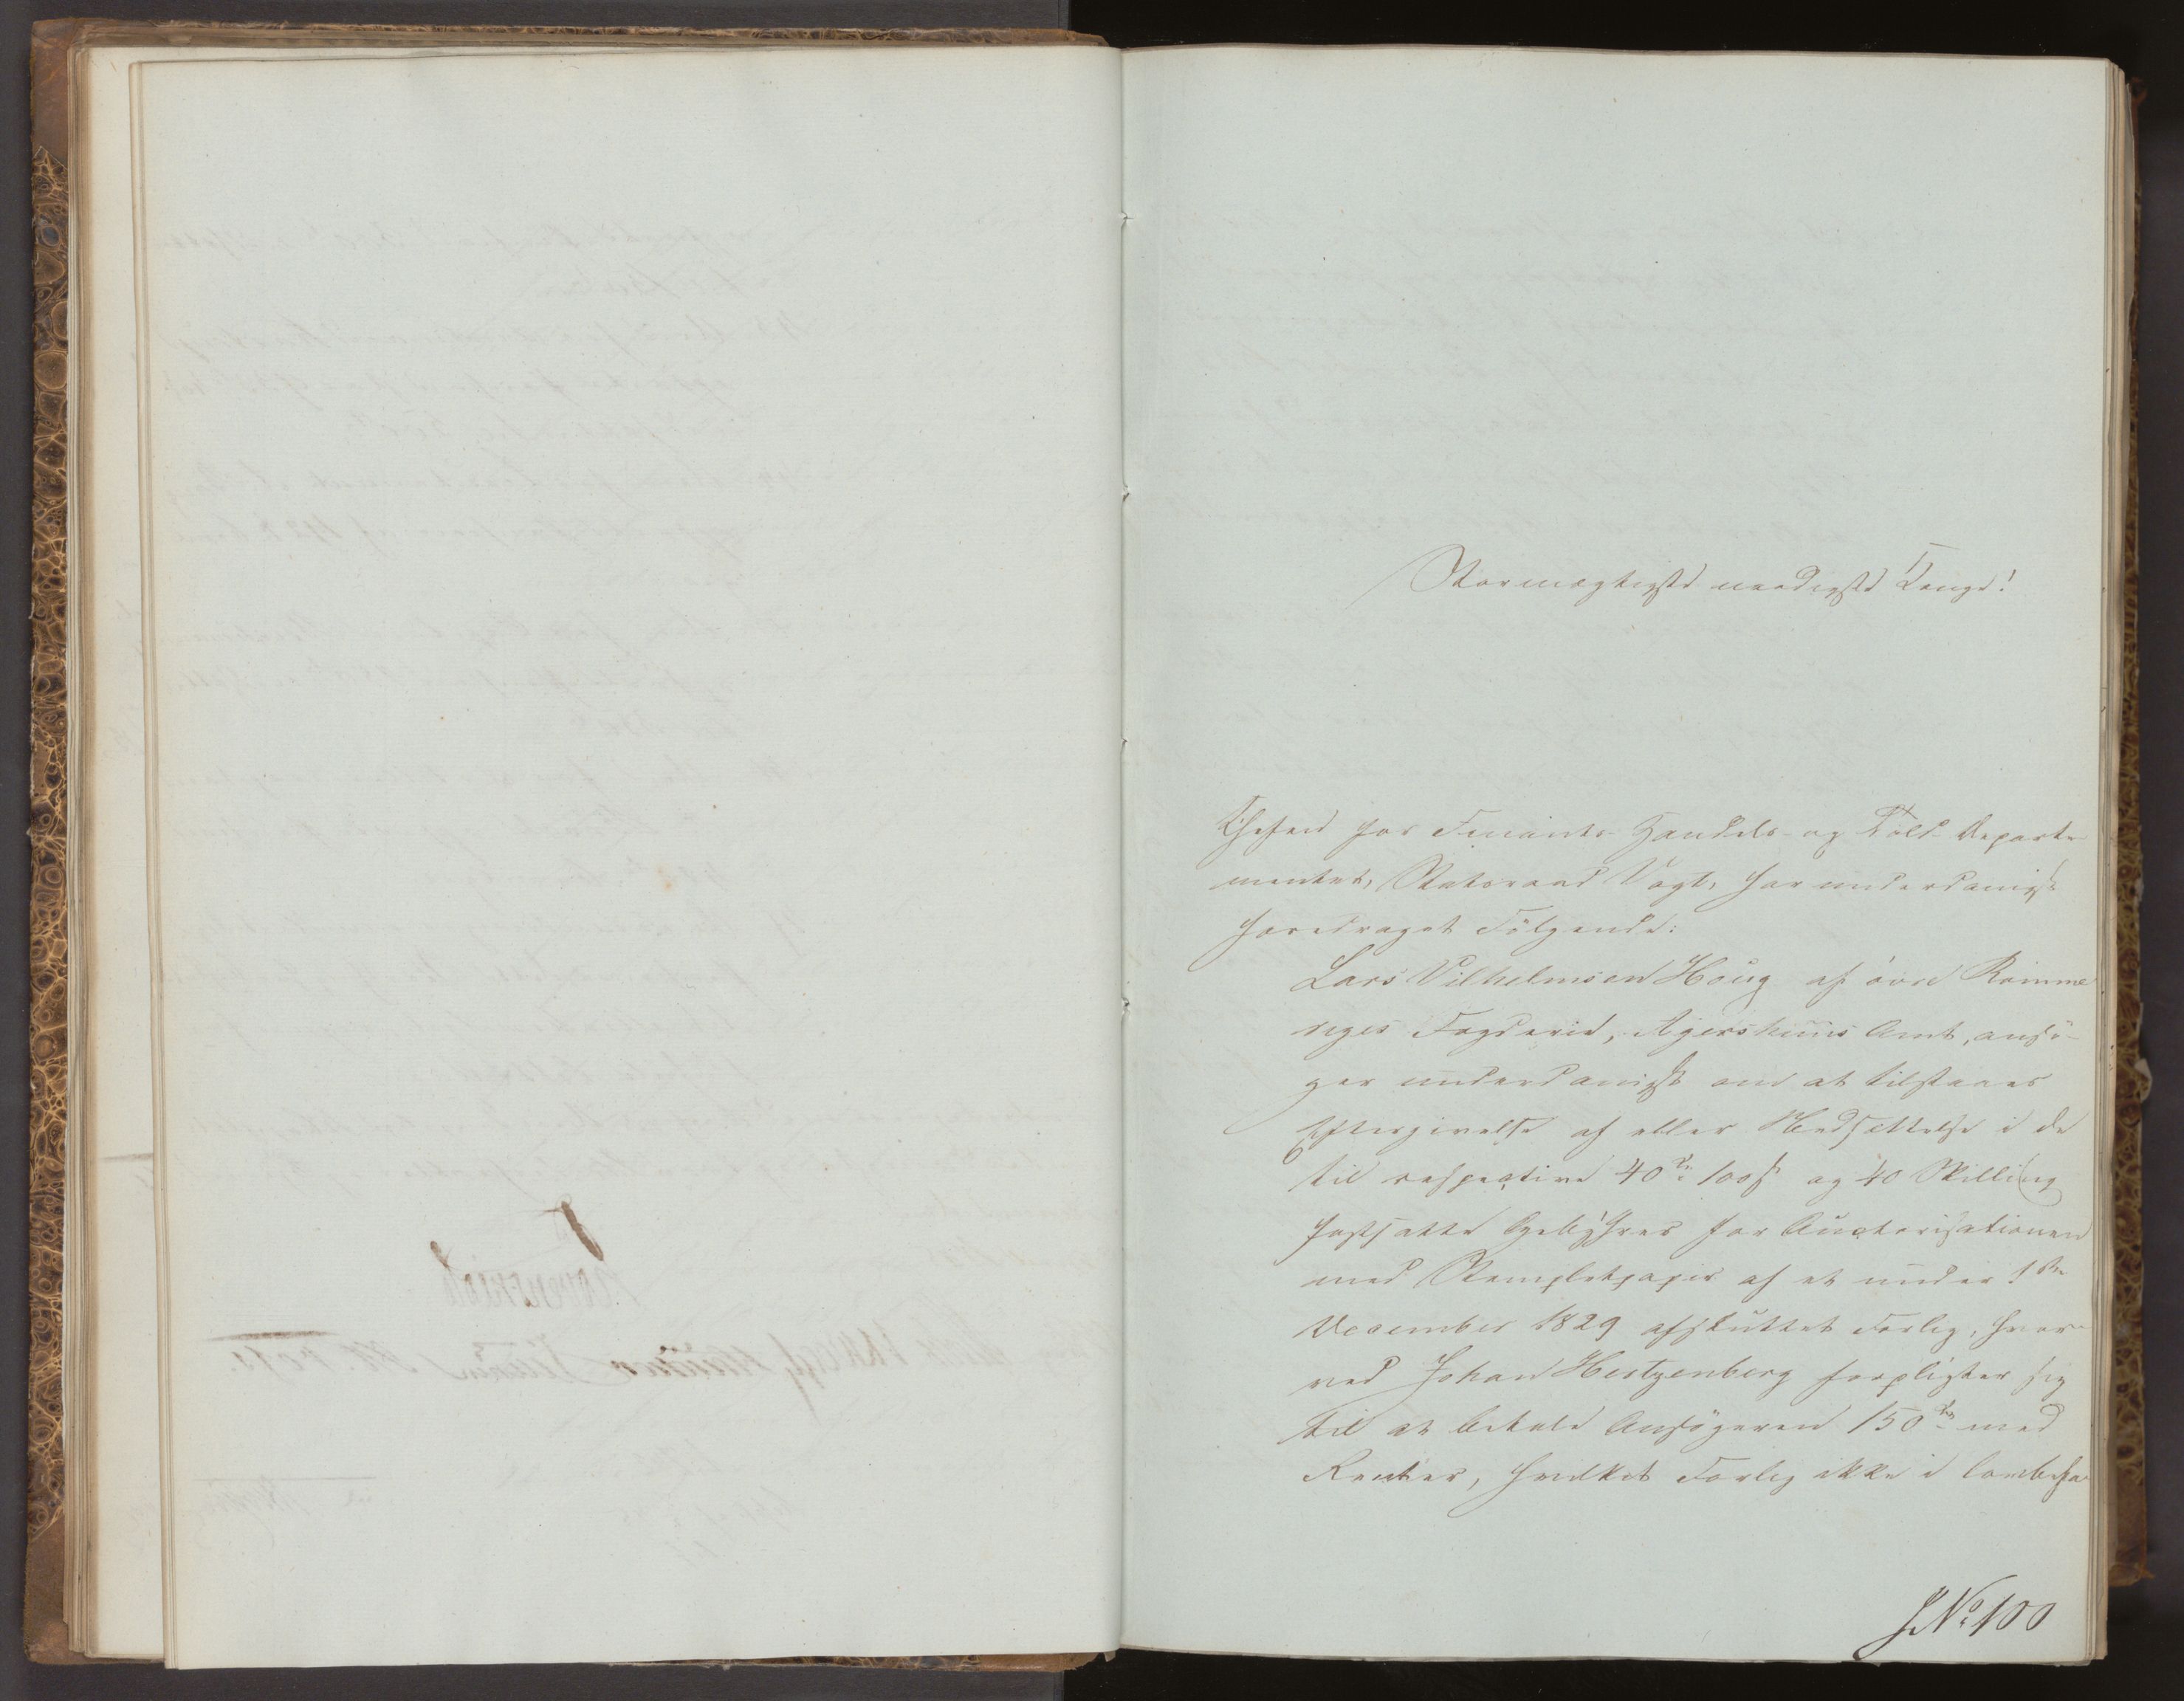 Stormægtigste naadigste Konge!
Chefen for Finants- Handels- og Told-Departe-
mentet, Statsraad Vogt, har underdanigst
foredraget Følgende:
Lars Vilhelmsen Houg af övre Romme-
riges Fogderie, Agershuus Amt, ansö-
ger underdanigst om at tilstaaes
Eftergivelse af eller Nedsættelse i de
til respective 40 100 og 40 Skilling
fastsatte Gebyhrer for Auctorisationen
med Stempletpapir af et under 1
December 1829 afsluttet Forlig, hvor-
ved Johan Hertzenberg forpligter sig
til at betale Ansögeren 150 med
Renter, hvilket Forlig ikke i
J. No. 100